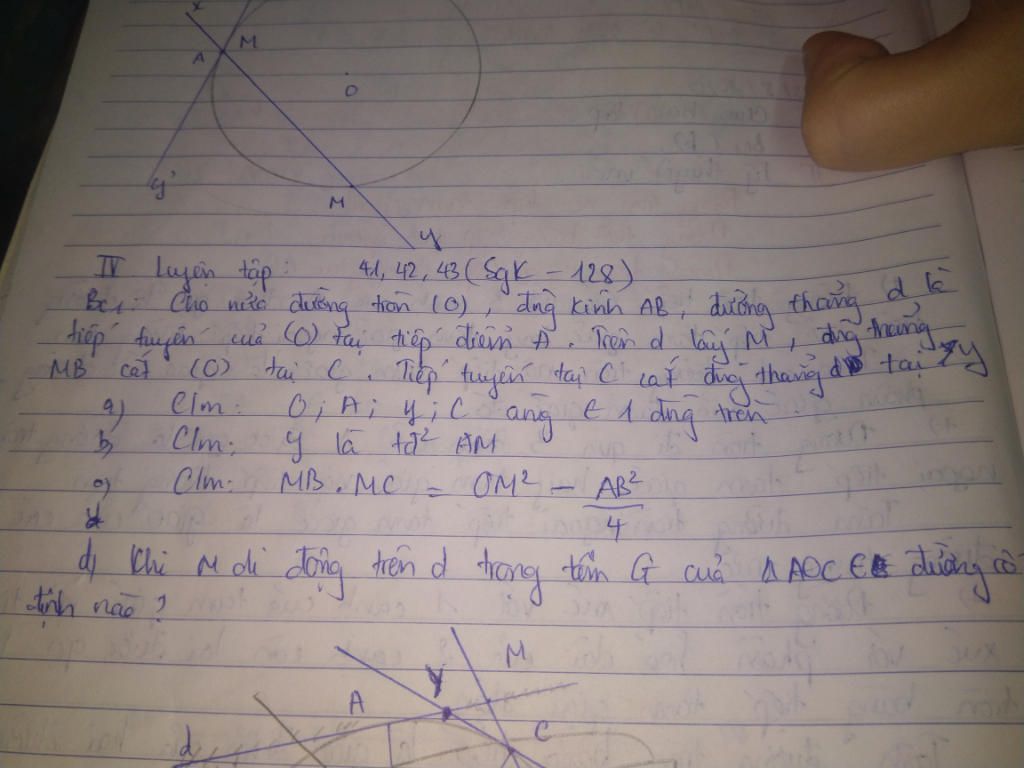 x
A M
O
y'
M
y
IV Luyện tập: 41, 42, 43 (Sgk - 128)
Bài 1: Cho nửa đường tròn (O), đng kính AB, đường thẳng d là
tiếp tuyến của (O) tại tiếp điểm A. Trên d lấy M, đng thẳng
MB cắt (O) tại C. Tiếp tuyến tại C cắt đng thẳng d tại y
a) C/m: O; A; y; C cùng ∈ 1 đng tròn
b) C/m: y là tđ² AM
c) C/m: MB.MC = OM² - AB²/4
d) Khi M di động trên d trọng tâm G của Δ AOC ∈ đường cố
định nào?
M
y
A
C
d